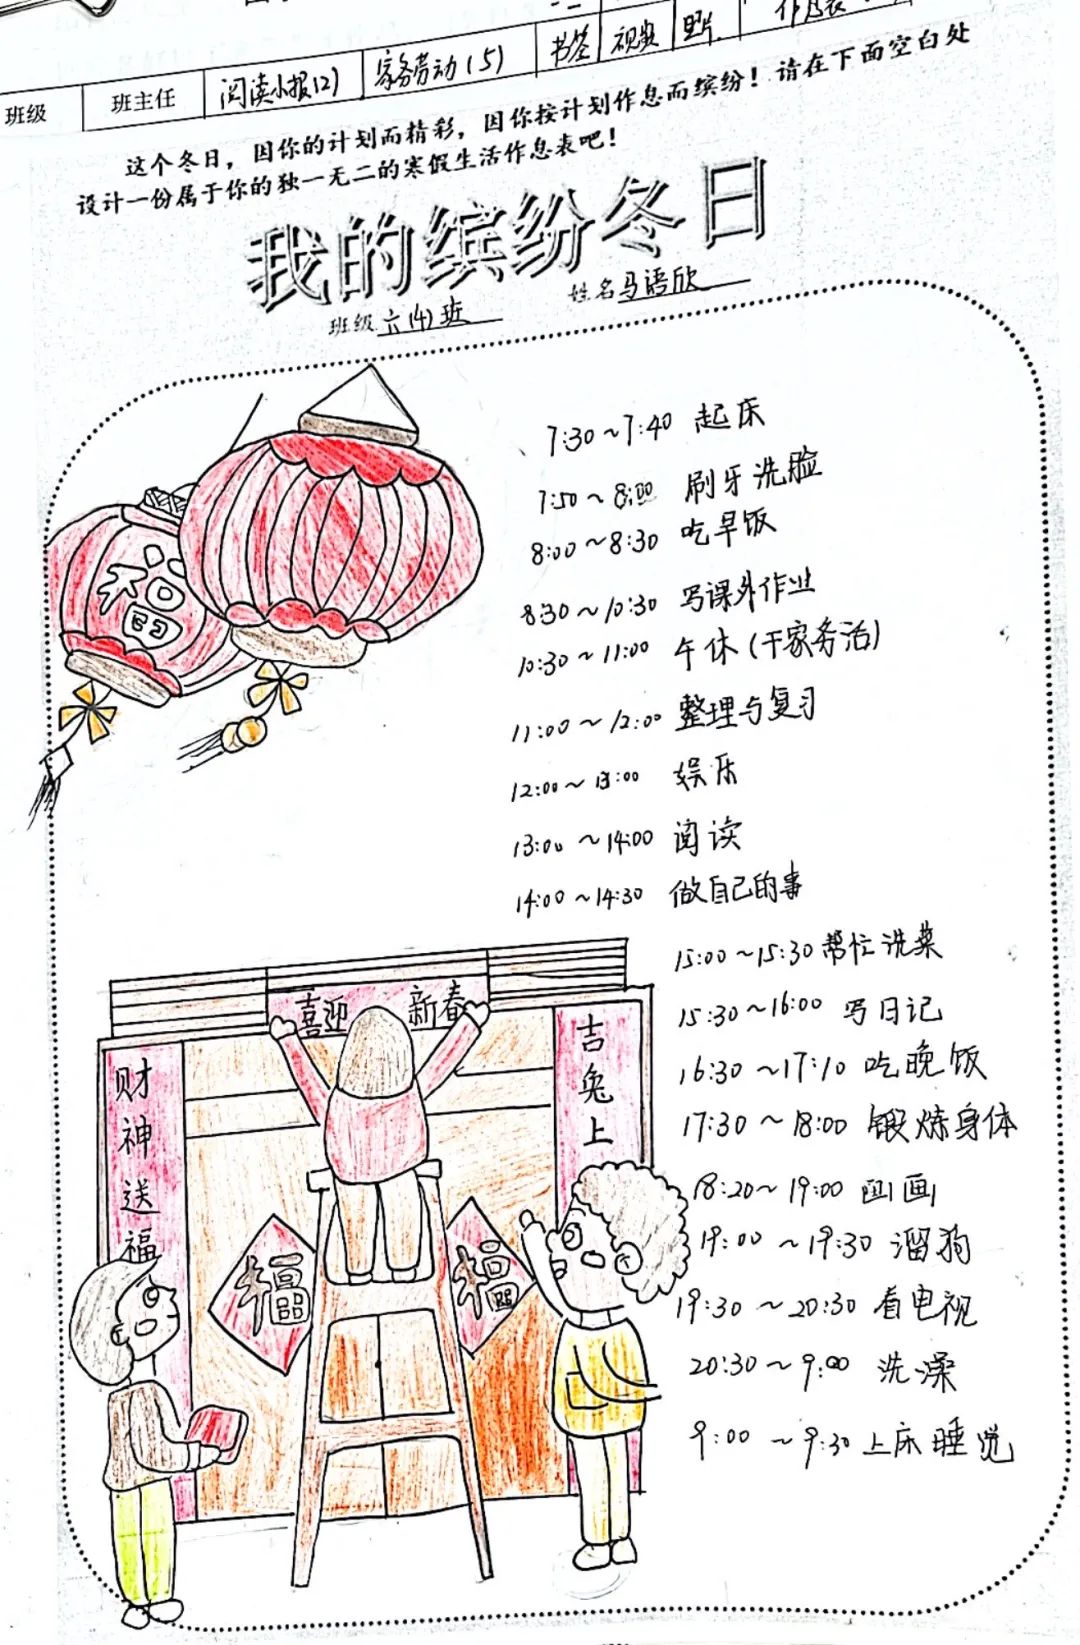 班级 班主任 阅读小报(2) 家务劳动(5) 书签 视频 照片
这个冬日，因你的计划而精彩，因你按计划作息而缤纷！请在下面空白处
设计一份属于你的独一无二的寒假生活作息表吧！
我的缤纷冬日
班级 六(4)班 姓名 马语欣
7:30~7:40 起床
7:50~8:00 刷牙洗脸
8:00~8:30 吃早饭
8:30~10:30 写课外作业
10:30~11:00 午休(干家务活)
11:00~12:00 整理与复习
12:00~13:00 娱乐
13:00~14:00 阅读
14:00~14:30 做自己的事
15:00~15:30 帮忙洗菜
15:30~16:00 写日记
16:30~17:10 吃晚饭
17:30~18:00 锻炼身体
18:20~19:00 画画
19:00~19:30 溜狗
19:30~20:30 看电视
20:30~9:00 洗澡
9:00~9:30 上床睡觉
福
喜迎新春
财神送福
吉兔上
福
福